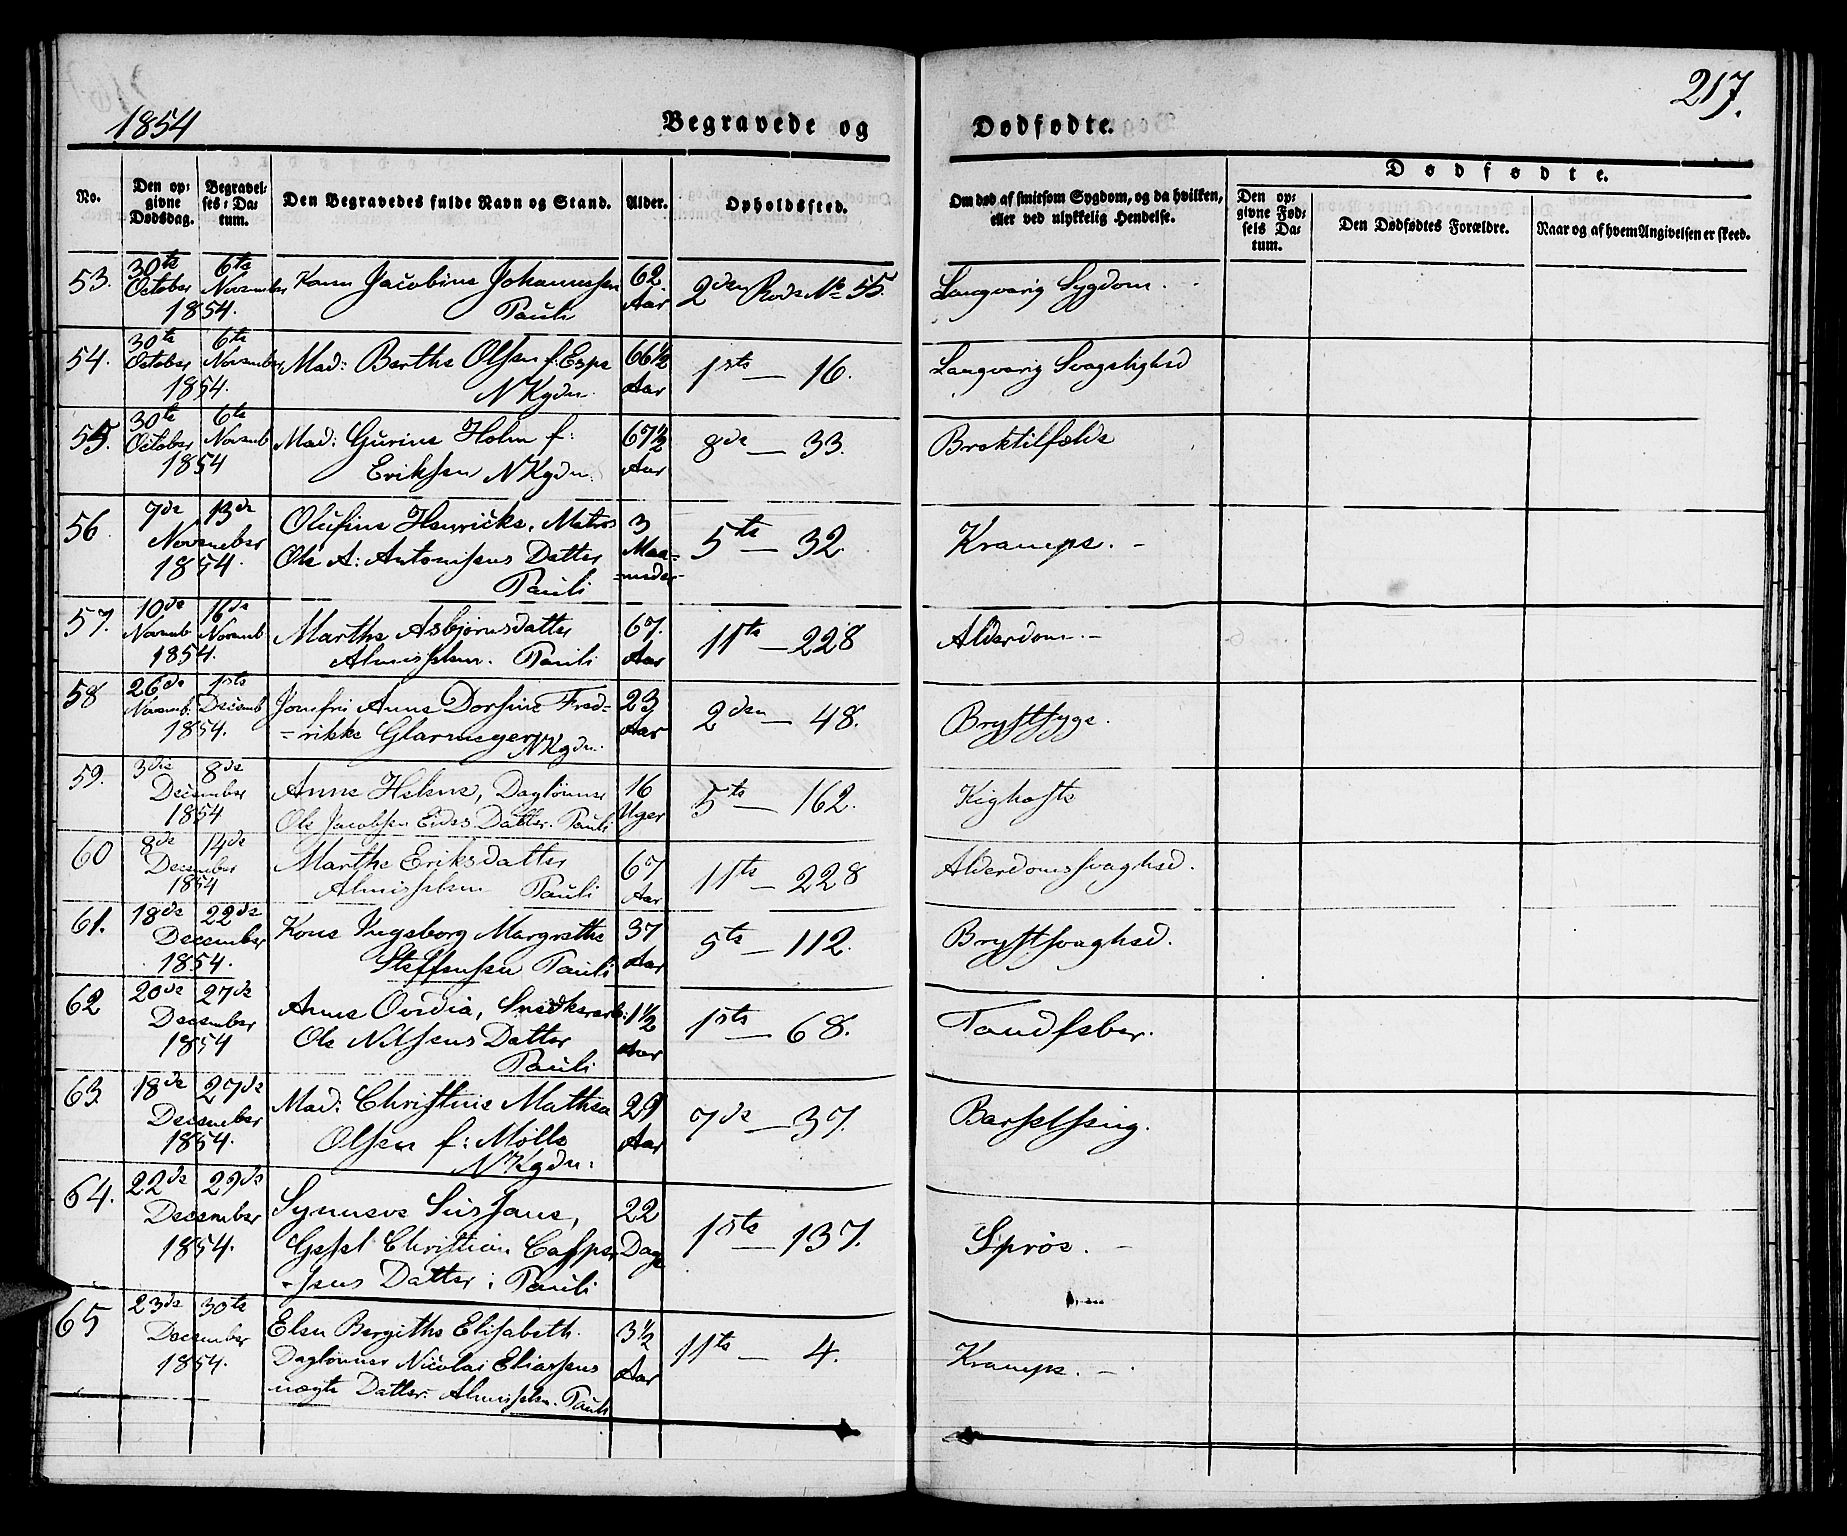 217.
1854
Begravede og Dødfødte.
No.
Den op-
givne
Dødsdag.
Begravel-
ses-Da-
tum.
Den Begravedes fulde Navn og Stand.
Alder.
Opholdssted.
Om død af smitsom Sygdom, og da hvilken,
eller ved ulykkelig Hendelse.
Dødfødte.
Den op-
givne Fød-
sels Da-
tum.
Den Dødfødtes Forældre.
Naar og af hvem Angivelsen er skeed.
53. 30te 6te Kone Jacobine Johannessen 62 2den Rode No 55. Langvarig Sygdom.
October November Pauli Aar
1854.
54. 30te 6te Mad: Berthe Olsen f. Espe 66½ 1ste — 16. Langvarig Svagelighed
October November NKgdn. Aar
1854.
55. 30te 6te Mad: Gurine Holm f: 67½ 8de — 33. Broktilfælde
October Novemb Eriksen NKgdn. Aar
1854
56. 7de 13de Olufine Henricke, Matros 3 5te — 32 Krampe. -
November Ole A: Antonisens Datter Maa-
1854. Pauli -neder-
57. 10de 16de Marthe Asbjørnsdatter 67. 11te — 228 Alderdom. -
Novemb Novemb Almisselem. Pauli Aar
1854.
58 26de 1ste Jomfru Anne Dorsine Fred= 23 2den — 48. Brystsyge.
Novemb. Decemb =rikke Glarmeyer NKgdn. Aar
1854.
59. 3die 8de Anne Helene, Daglønner 16 5te — 162. Kighoste
December Ole Jacobsen Eides Datter. Pauli Uger
1854
60 8de 14de Marthe Eriksdatter 67 11te — 228 Alderdomssvaghed.
December Almisselem Pauli Aar
1854
61. 18de 22de Kone Ingeborg Margrethe 37 5te — 112. Brystsvaghed.
December Steffensen Pauli Aar
1854.
62 20de 27de Anne Ovidia, Snedkerarb: 1½ 1ste — 68. Tandfeber.
December Ole Nilsens Datter Aar
1854 Pauli
63. 18de 27de Mad: Christine Mathea 29 7de — 37. Barselseng.
December Olsen f: Mølle Aar
1854. NKgdn:
64. 22de 29de Synneve Susanne, 22 1ste — 137. Sprøe. -
December Gesel Christian Casper Dage
1854. -sens Datter; Pauli
65 23de 30te Elen Bergithe Elisabeth. 3½ 11te — 4. Krampe. -
December Daglønner Nicolai Eliassens Aar
1854. uægte Datter. Almisselem. Pauli